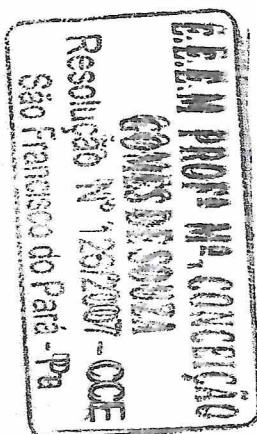 E.E.E.M PROFª Mª. CONCEIÇÃO
GOMES DE SOUZA
Resolução Nº 126/2007 - CCE
São Francisco do Pará - Pa